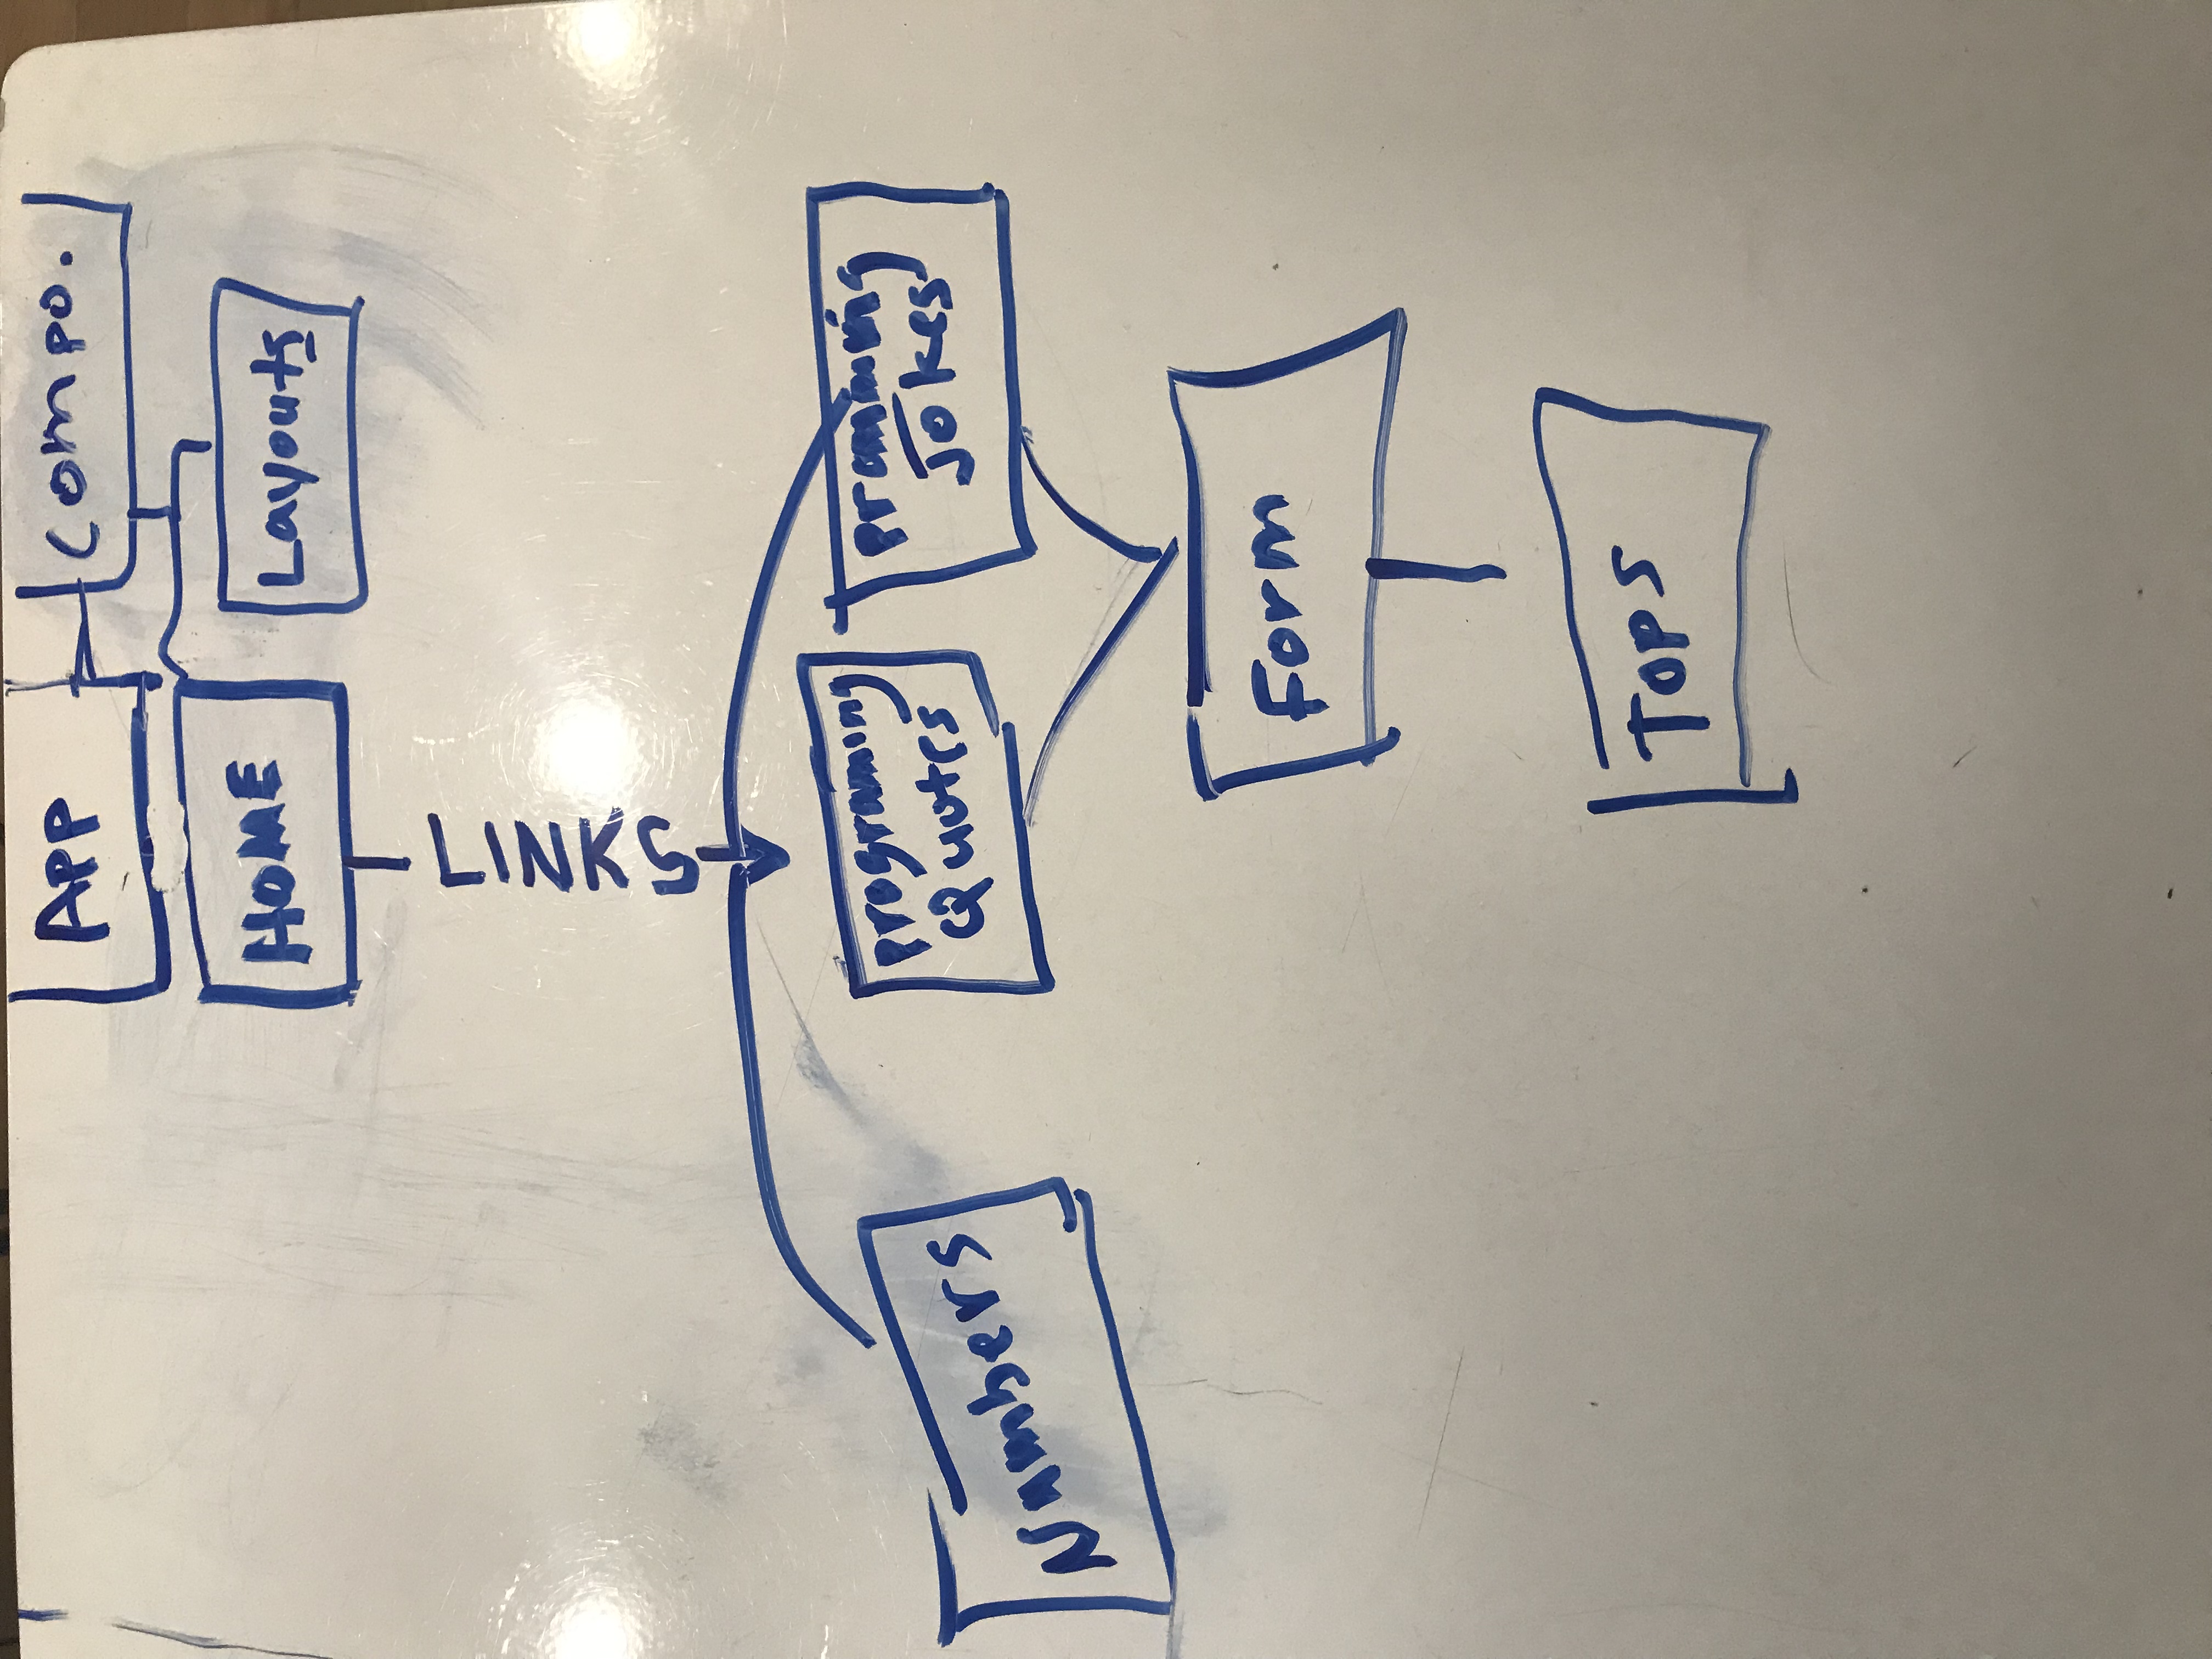 App
Compo.
HOME
Layouts
LINKS
Numbers
programing
Quotes
pramming
Jokes
Form
Tops